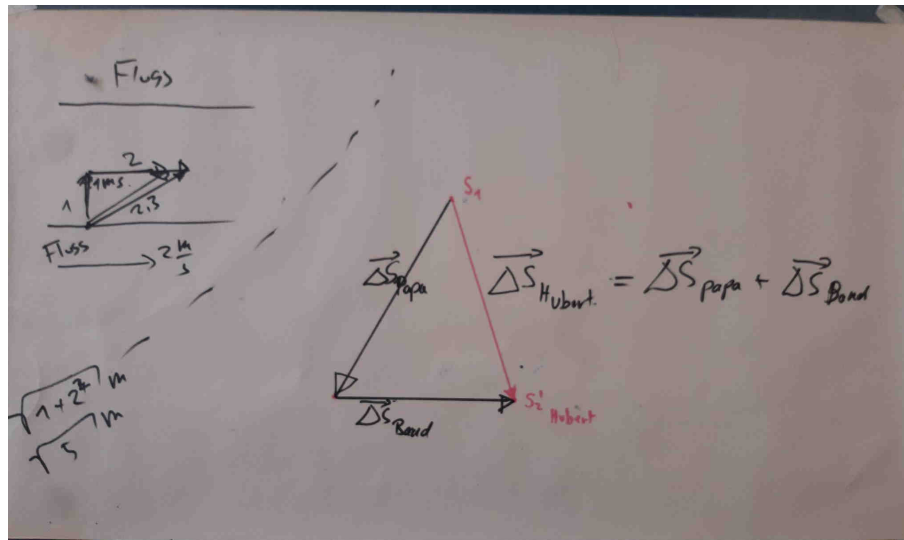 Fluss
2
1 1 m/s.
2,3
Fluss
2 m/s
√1+2² m
√5 m
S₁
ΔS⃗ Papa
ΔS⃗ Hubert = ΔS⃗ Papa + ΔS⃗ Band
ΔS⃗ Band
S₂' Hubert